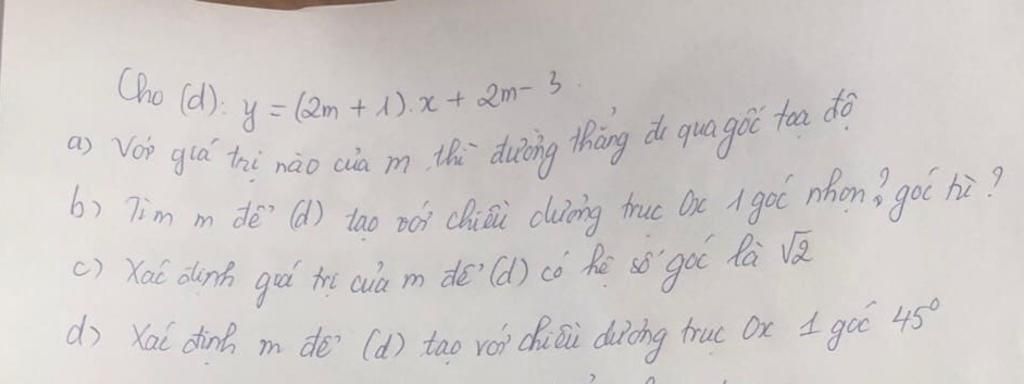 Cho (d): y = (2m + 1).x + 2m - 3.
a) Với giá trị nào của m thì đường thẳng đi qua gốc toạ độ
b) Tìm m để (d) tạo với chiều dương trục Ox 1 góc nhọn? góc tù?
c) Xác định giá trị của m để (d) có hệ số góc là √2
d) Xác định m để (d) tạo với chiều dương trục Ox 1 góc 45°